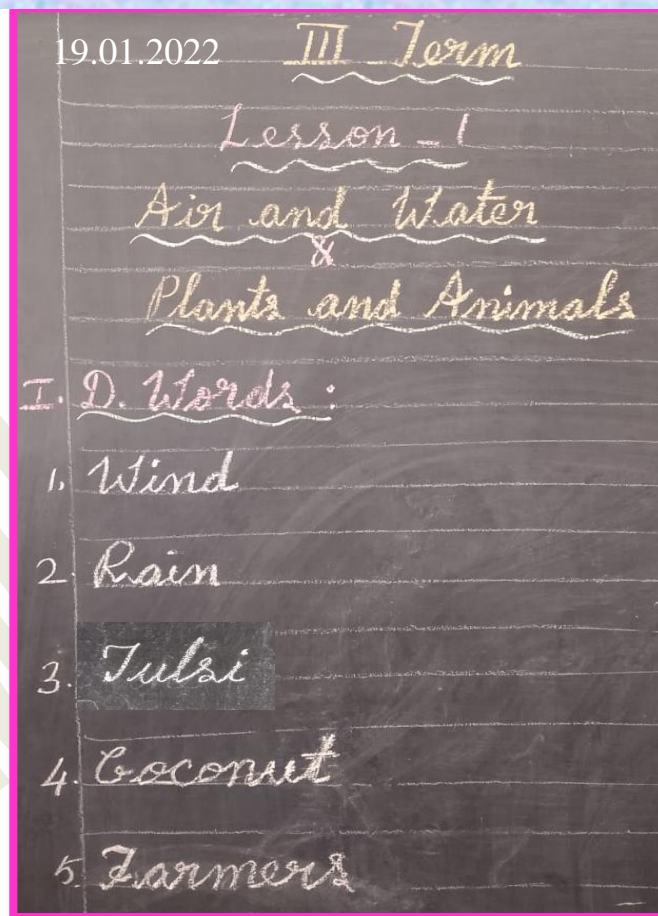 19.01.2022 III Term
Lesson - 1
Air and Water
&
Plants and Animals
I. D. Words :
1. Wind
2. Rain
3. Tulsi
4. Coconut
5. Farmers